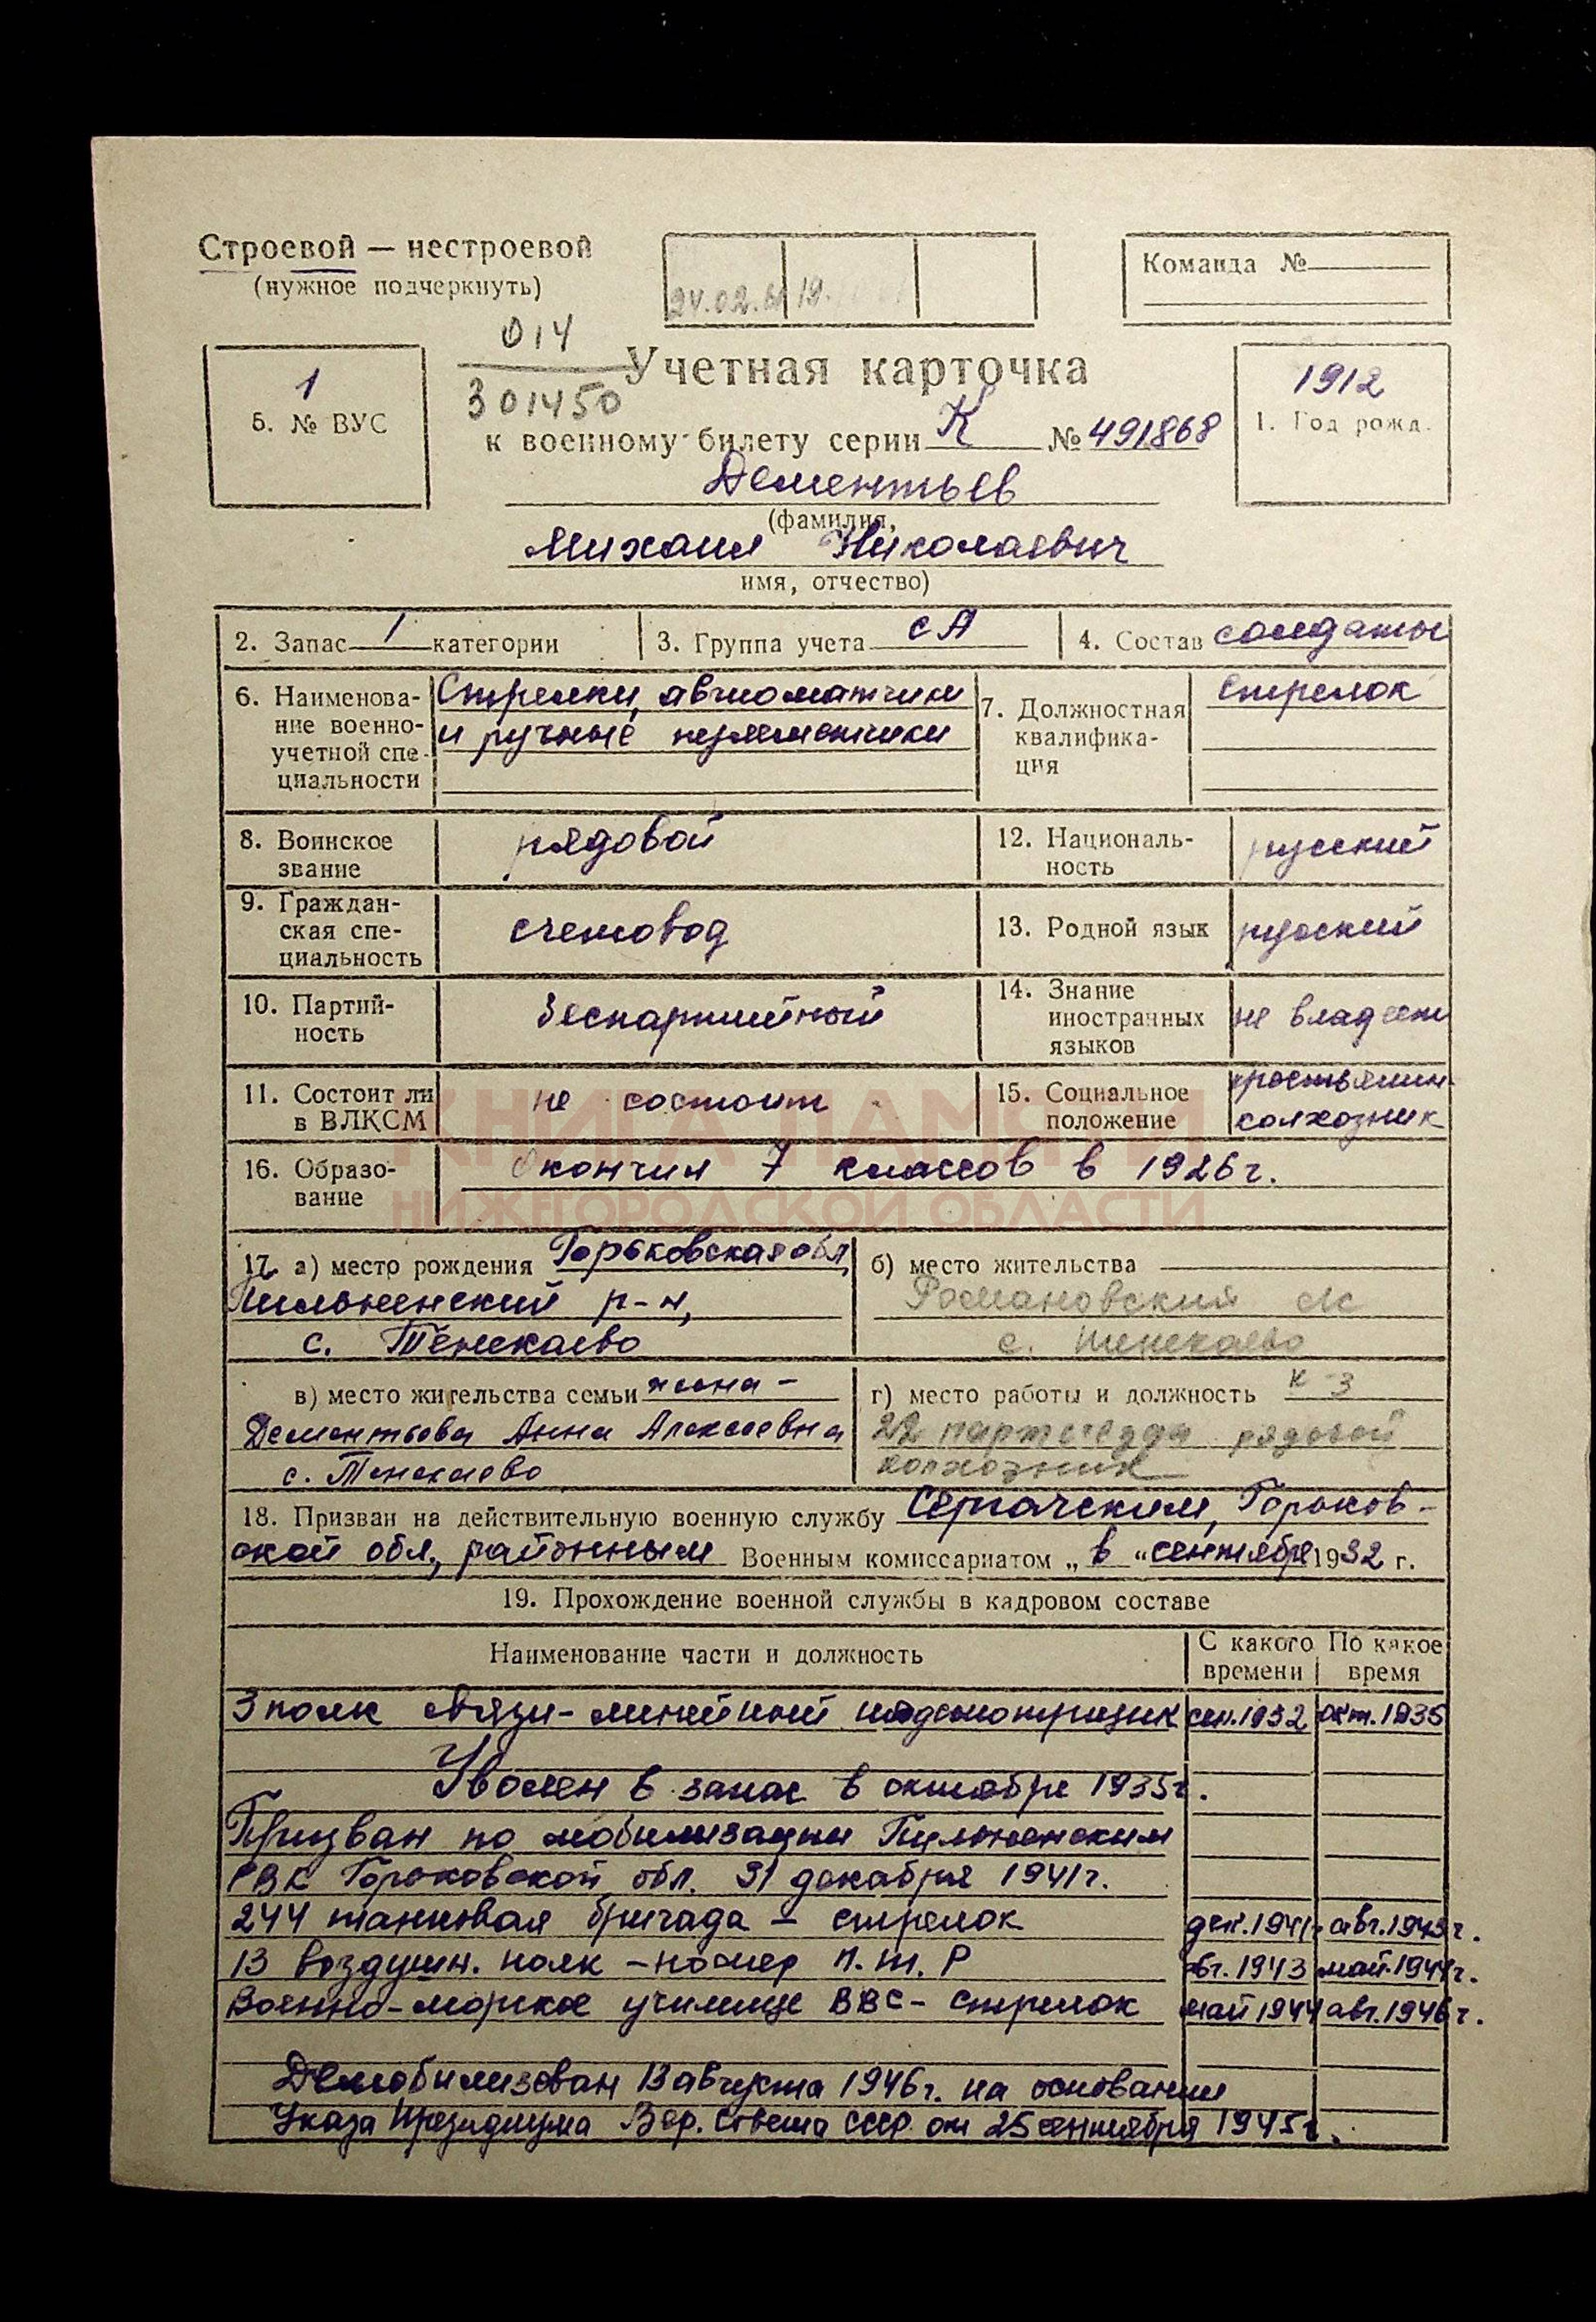 Строевой — нестроевой
(нужное подчеркнуть)
24.02.61 19.
Команда №
014
301450
Учетная карточка
1
5. № ВУС
1912
1. Год рожд.
к военному билету серии К № 491868
Дементьев
(фамилия,
Михаил Николаевич
имя, отчество)
2. Запас 1 категории
3. Группа учета СА
4. Состав солдаты
6. Наименова-
ние военно-
учетной спе-
циальности
Стрелки, автоматчики
и ручные пулеметчики
7. Должностная
квалифика-
ция
стрелок
8. Воинское
звание
рядовой
12. Националь-
ность
русский
9. Граждан-
ская спе-
циальность
счетовод
13. Родной язык
русский
10. Партий-
ность
беспартийный
14. Знание
иностранных
языков
не владеет
11. Состоит ли
в ВЛКСМ
не состоит
15. Социальное
положение
крестьянин-
колхозник
КНИГА ПАМЯТИ
НИЖЕГОРОДСКОЙ ОБЛАСТИ
16. Образо-
вание
Окончил 7 классов в 1926 г.
17. а) место рождения Горьковская обл,
Пильненский р-н,
с. Тенекаево
б) место жительства
Романовский с/с
с. Тенекаево
в) место жительства семьи жена -
Дементьева Анна Алексеевна
с. Тенекаево
г) место работы и должность к-з
22 партсъезда рядовой
колхозник
18. Призван на действительную военную службу Сергачским, Горьков-
ской обл., районным Военным комиссариатом „ в “ сентябре 1932 г.
19. Прохождение военной службы в кадровом составе
Наименование части и должность
С какого времени
По какое время
3 полк связи - линейный надсмотрщик сен. 1932 окт. 1935
Уволен в запас в октябре 1935г.
Призван по мобилизации Пильненским
РВК Горьковской обл. 31 декабря 1941г.
244 танковая бригада - стрелок дек. 1941г авг. 1943г.
13 воздушн. полк - номер п.т.Р авг. 1943 май 1944г.
Военно-морское училище ВВС - стрелок май 1944 авг. 1946г.
Демобилизован 13 августа 1946г. на основании
Указа Президиума Вер. Совета СССР от 25 сентября 1945г.